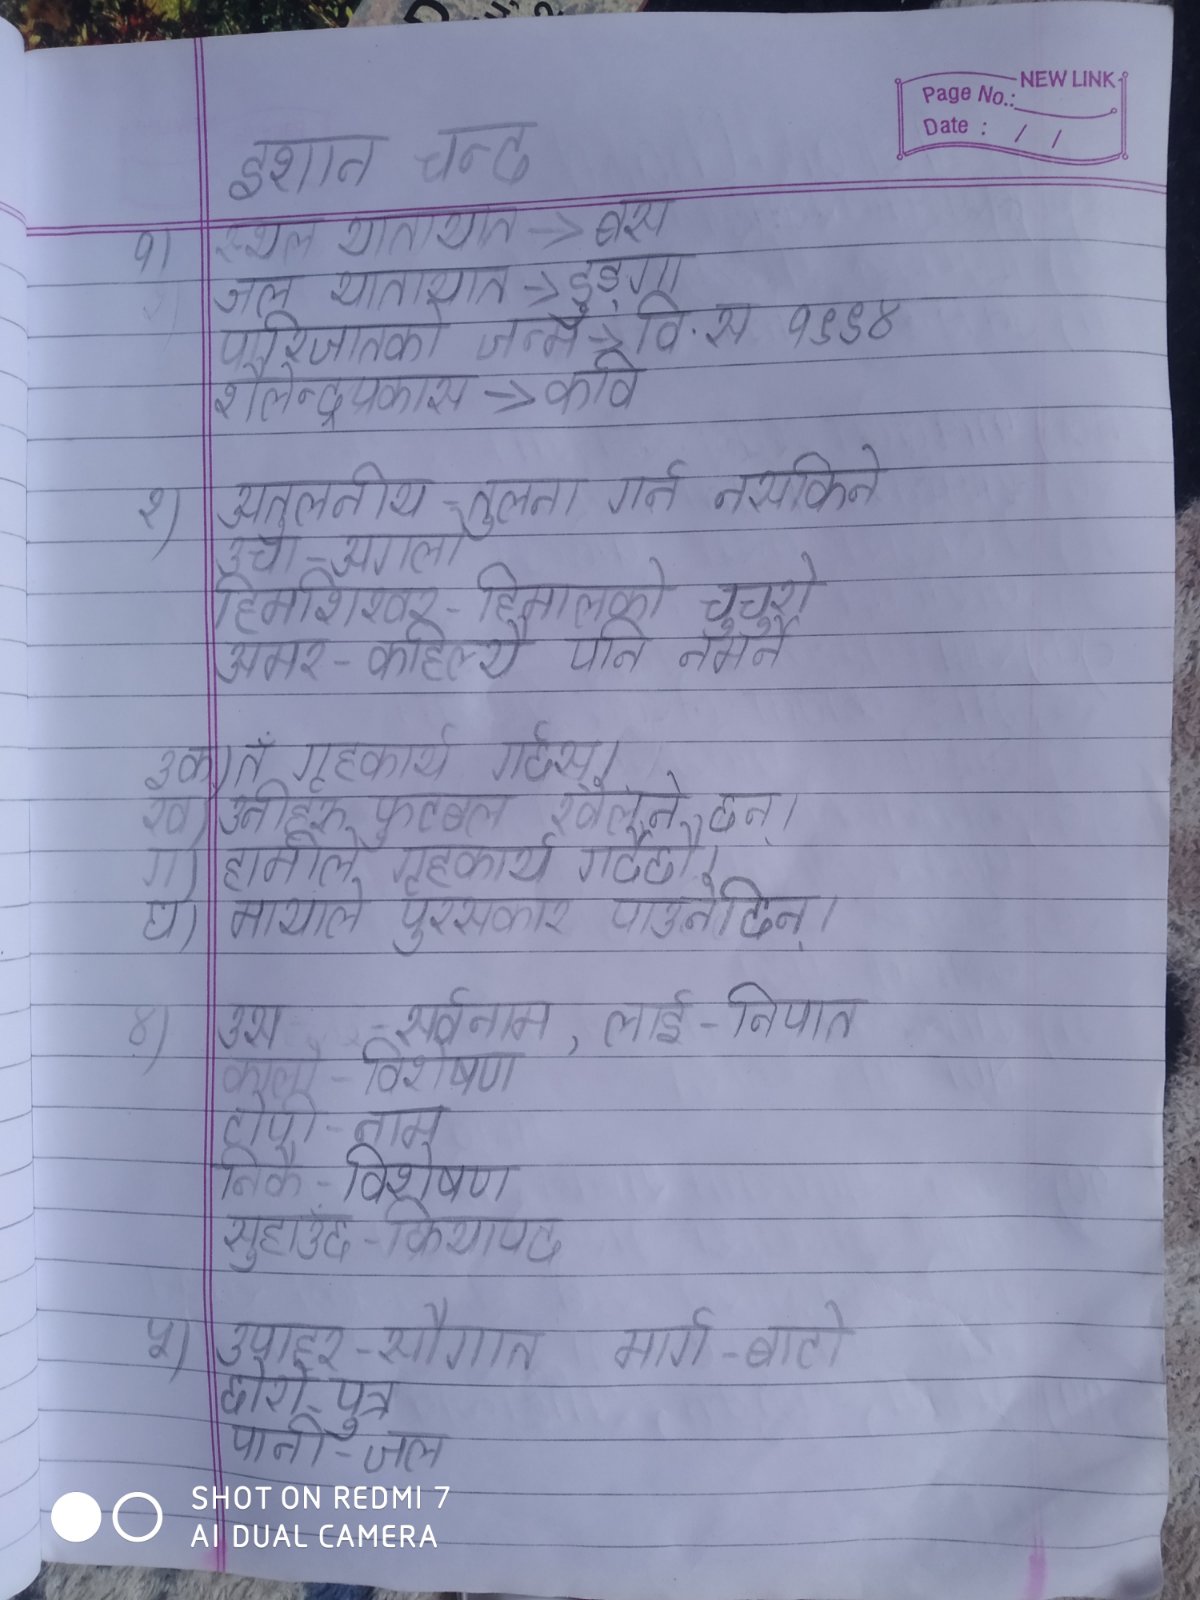 NEW LINK
Page No.:
Date : / /
इशान चन्द
१) स्थल यातायात → बस
जल यातायात → डुङ्गा
पारिजातको जन्म → वि.स १९९४
शैलेन्द्रप्रकास → कवि
२) अतुलनीय - तुलना गर्न नसकिने
उचा - अगलो
हिमशिखर - हिमालको चुचुरो
अमर - कहिल्यै पनि नमर्ने
३क) तँ गृहकार्य गर्दछस्।
ख) उनीहरू फुटबल खेल्ने छन्।
ग) हामीले गृहकार्य गर्दछौं।
घ) मायाले पुरसकार पाउनेछिन्।
४) उस - सर्वनाम , लाई - निपात
कालो - विशेषण
टोपी - नाम
निकै - विशेषण
सुहाउँछ - क्रियापद
५) उपाहर - सौगात मार्ग - बाटो
छोरो - पुत्र
पानी - जल
SHOT ON REDMI 7
AI DUAL CAMERA